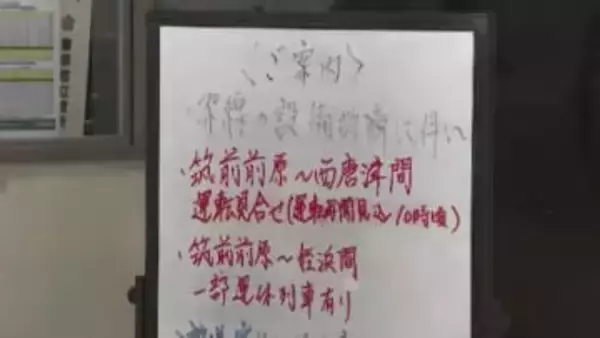 〈ご案内〉
架線の設備故障に伴い
・筑前前原〜西唐津間
運転見合せ(運転再開見込10時頃)
・筑前前原〜姪浜間
一部運休列車有り